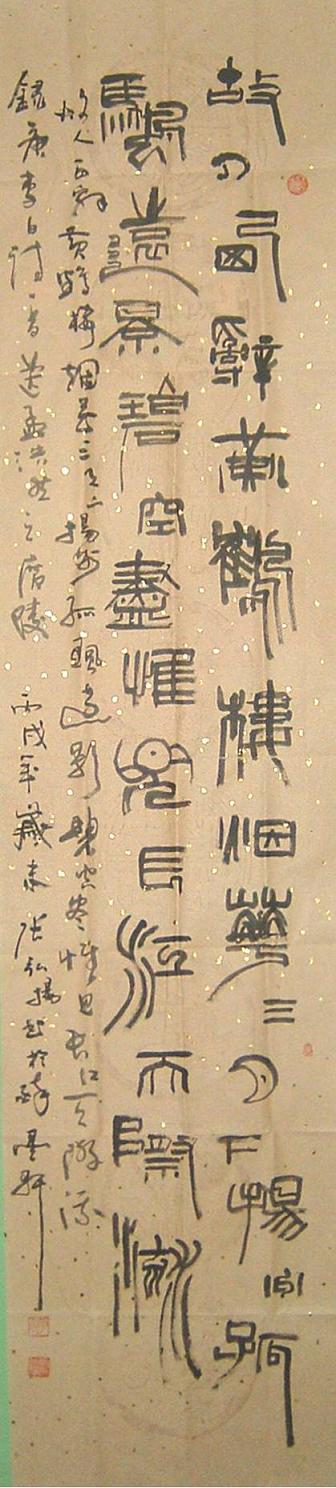 故人西辭黃鶴樓烟華三月下揚州孤
颿遠景碧空盡惟見長江天際流
故人西辭黃鶴樓烟華三月下揚州孤颿遠影碧空盡惟見長江天際流
錄唐李白詩一首送孟浩然之廣陵 丙戌年歲末 張弘揚書於醉墨軒